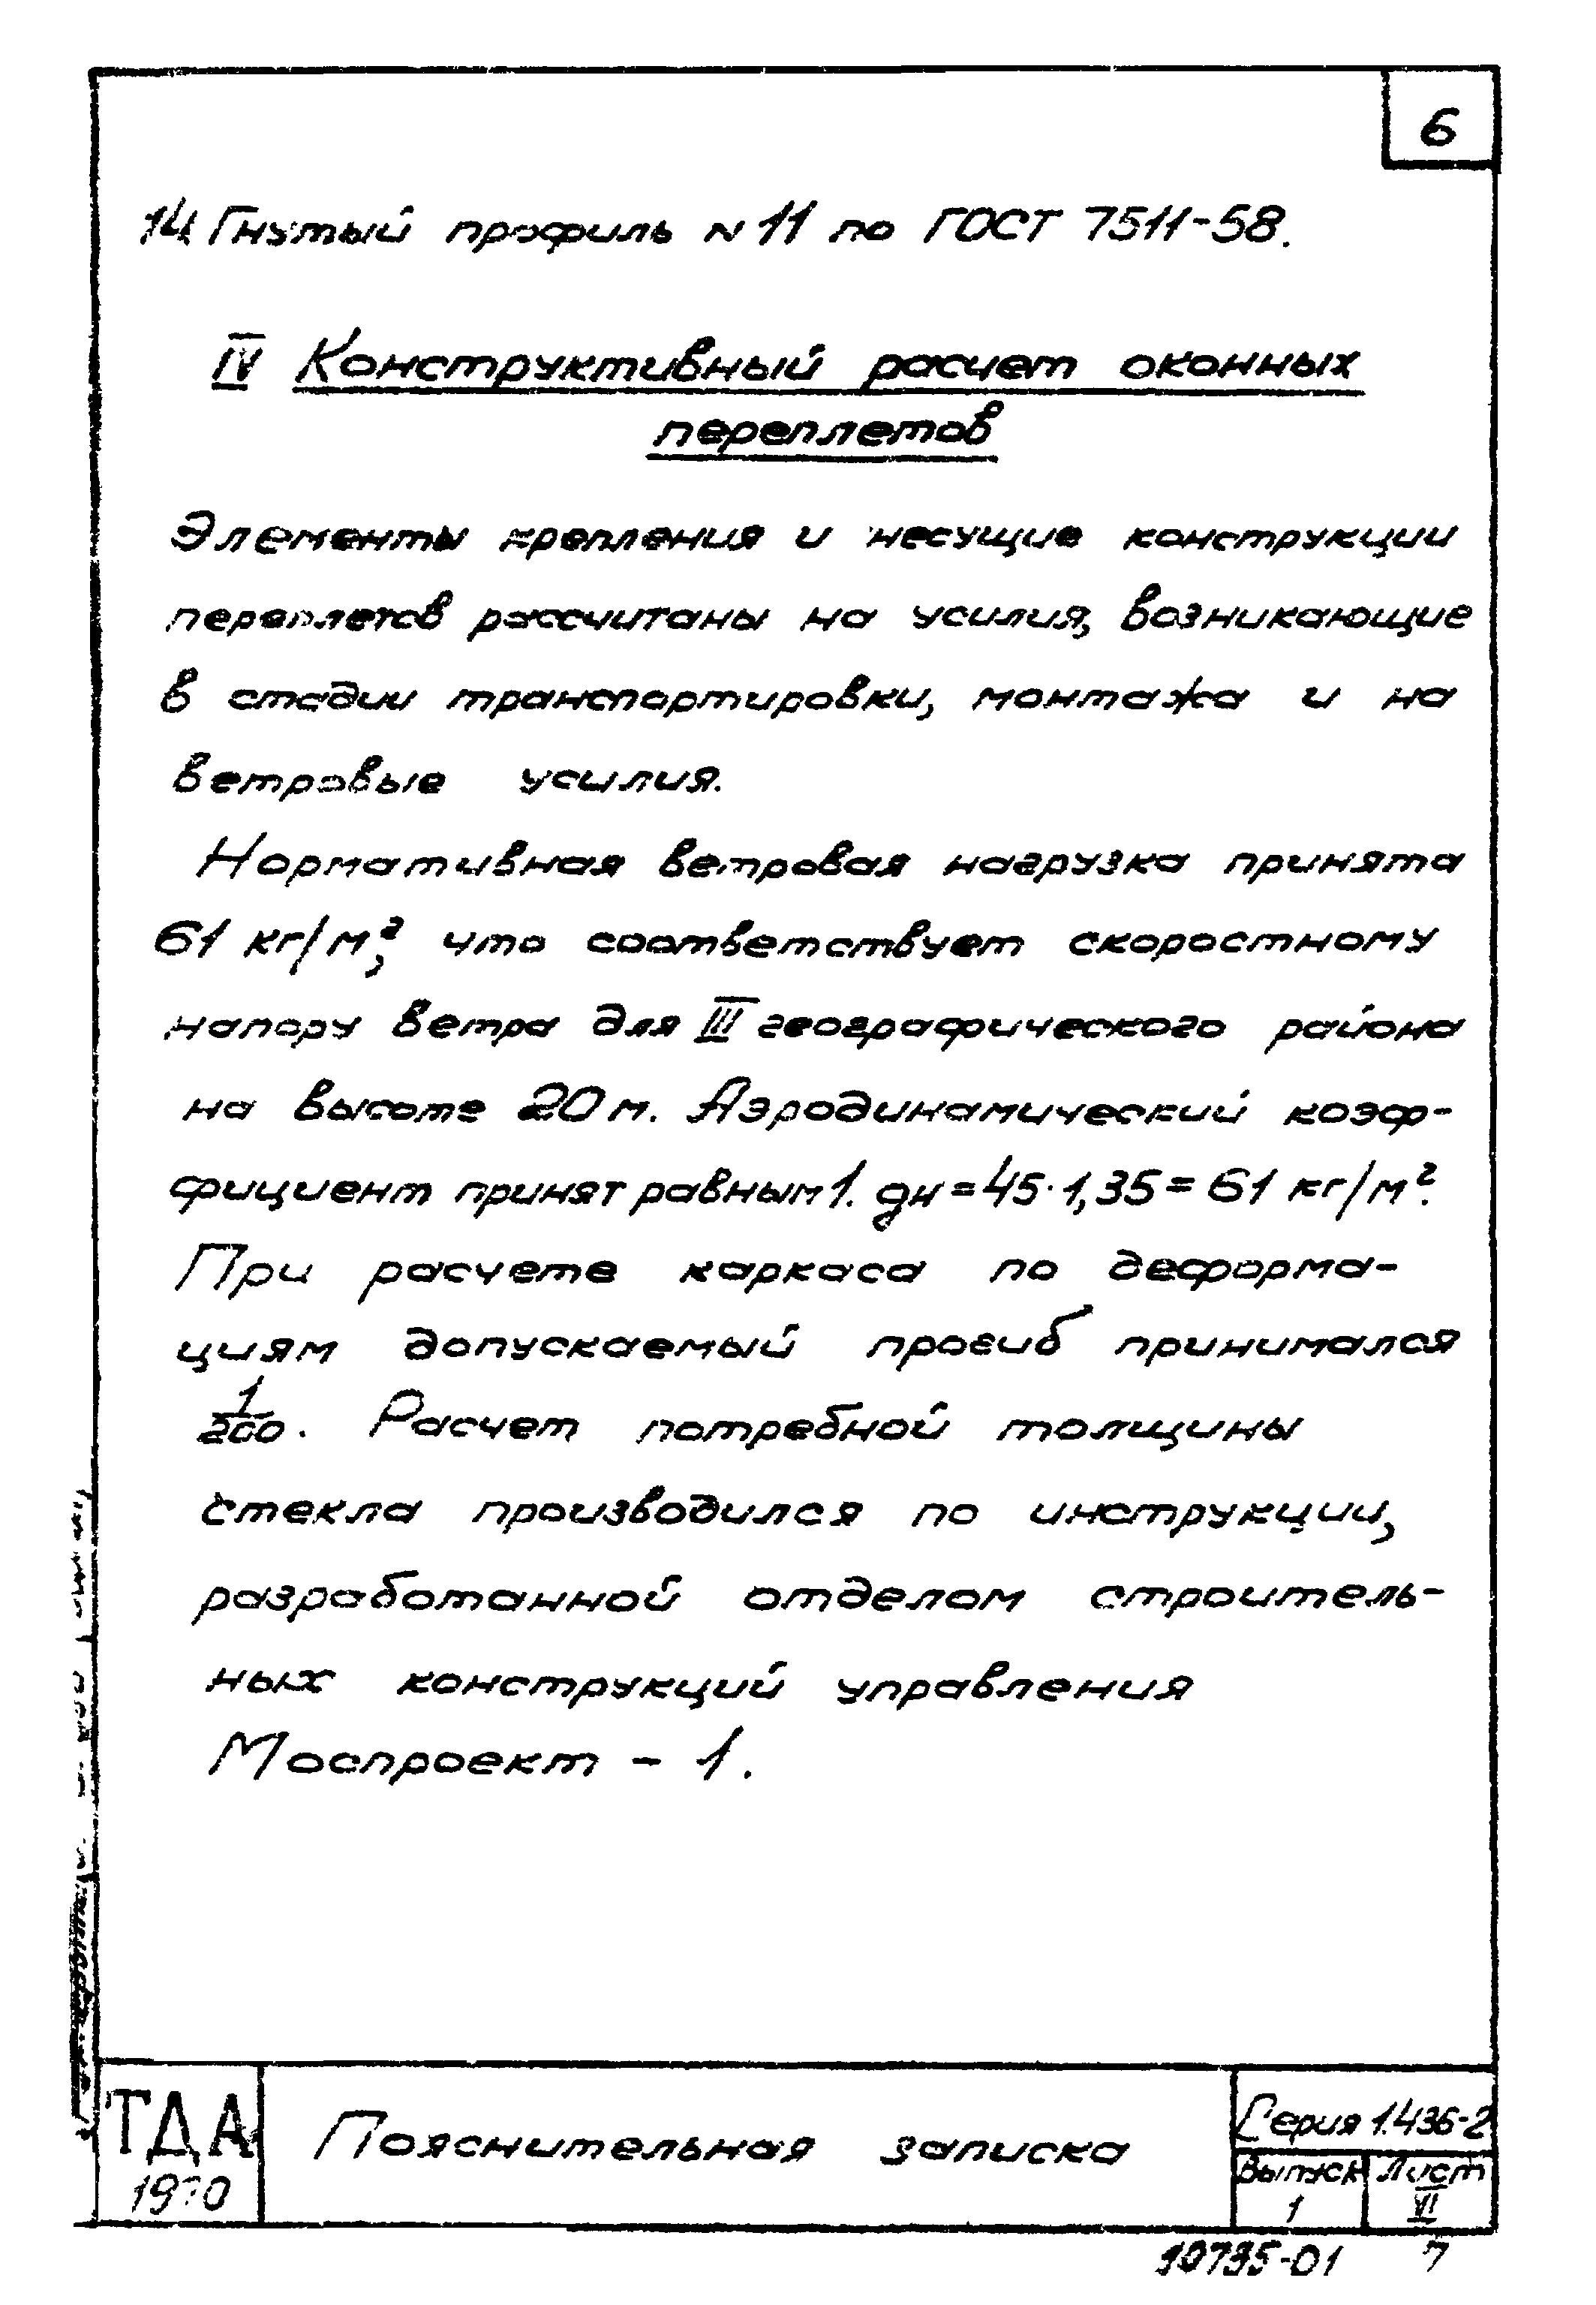 6
14 Гнутый профиль N 11 по ГОСТ 7511-58.
IV Конструктивный расчет оконных
переплетов
Элементы крепления и несущие конструкции
переплетов рассчитаны на усилия, возникающие
в стадии транспортировки, монтажа и на
ветровые усилия.
Нормативная ветровая нагрузка принята
61 кг/м², что соответствует скоростному
напору ветра для III географического района
на высоте 20 м. Аэродинамический коэф-
фициент принят равным 1. gн = 45·1,35 = 61 кг/м².
При расчете каркаса по деформа-
циям допускаемый прогиб принимался
1/200. Расчет потребной толщины
стекла производился по инструкции,
разработанной отделом строитель-
ных конструкций управления
Моспроект - 1.
ТДА
1970
Пояснительная записка
Серия 1.436-2
Выпуск
1
Лист
VI
10795-01 7